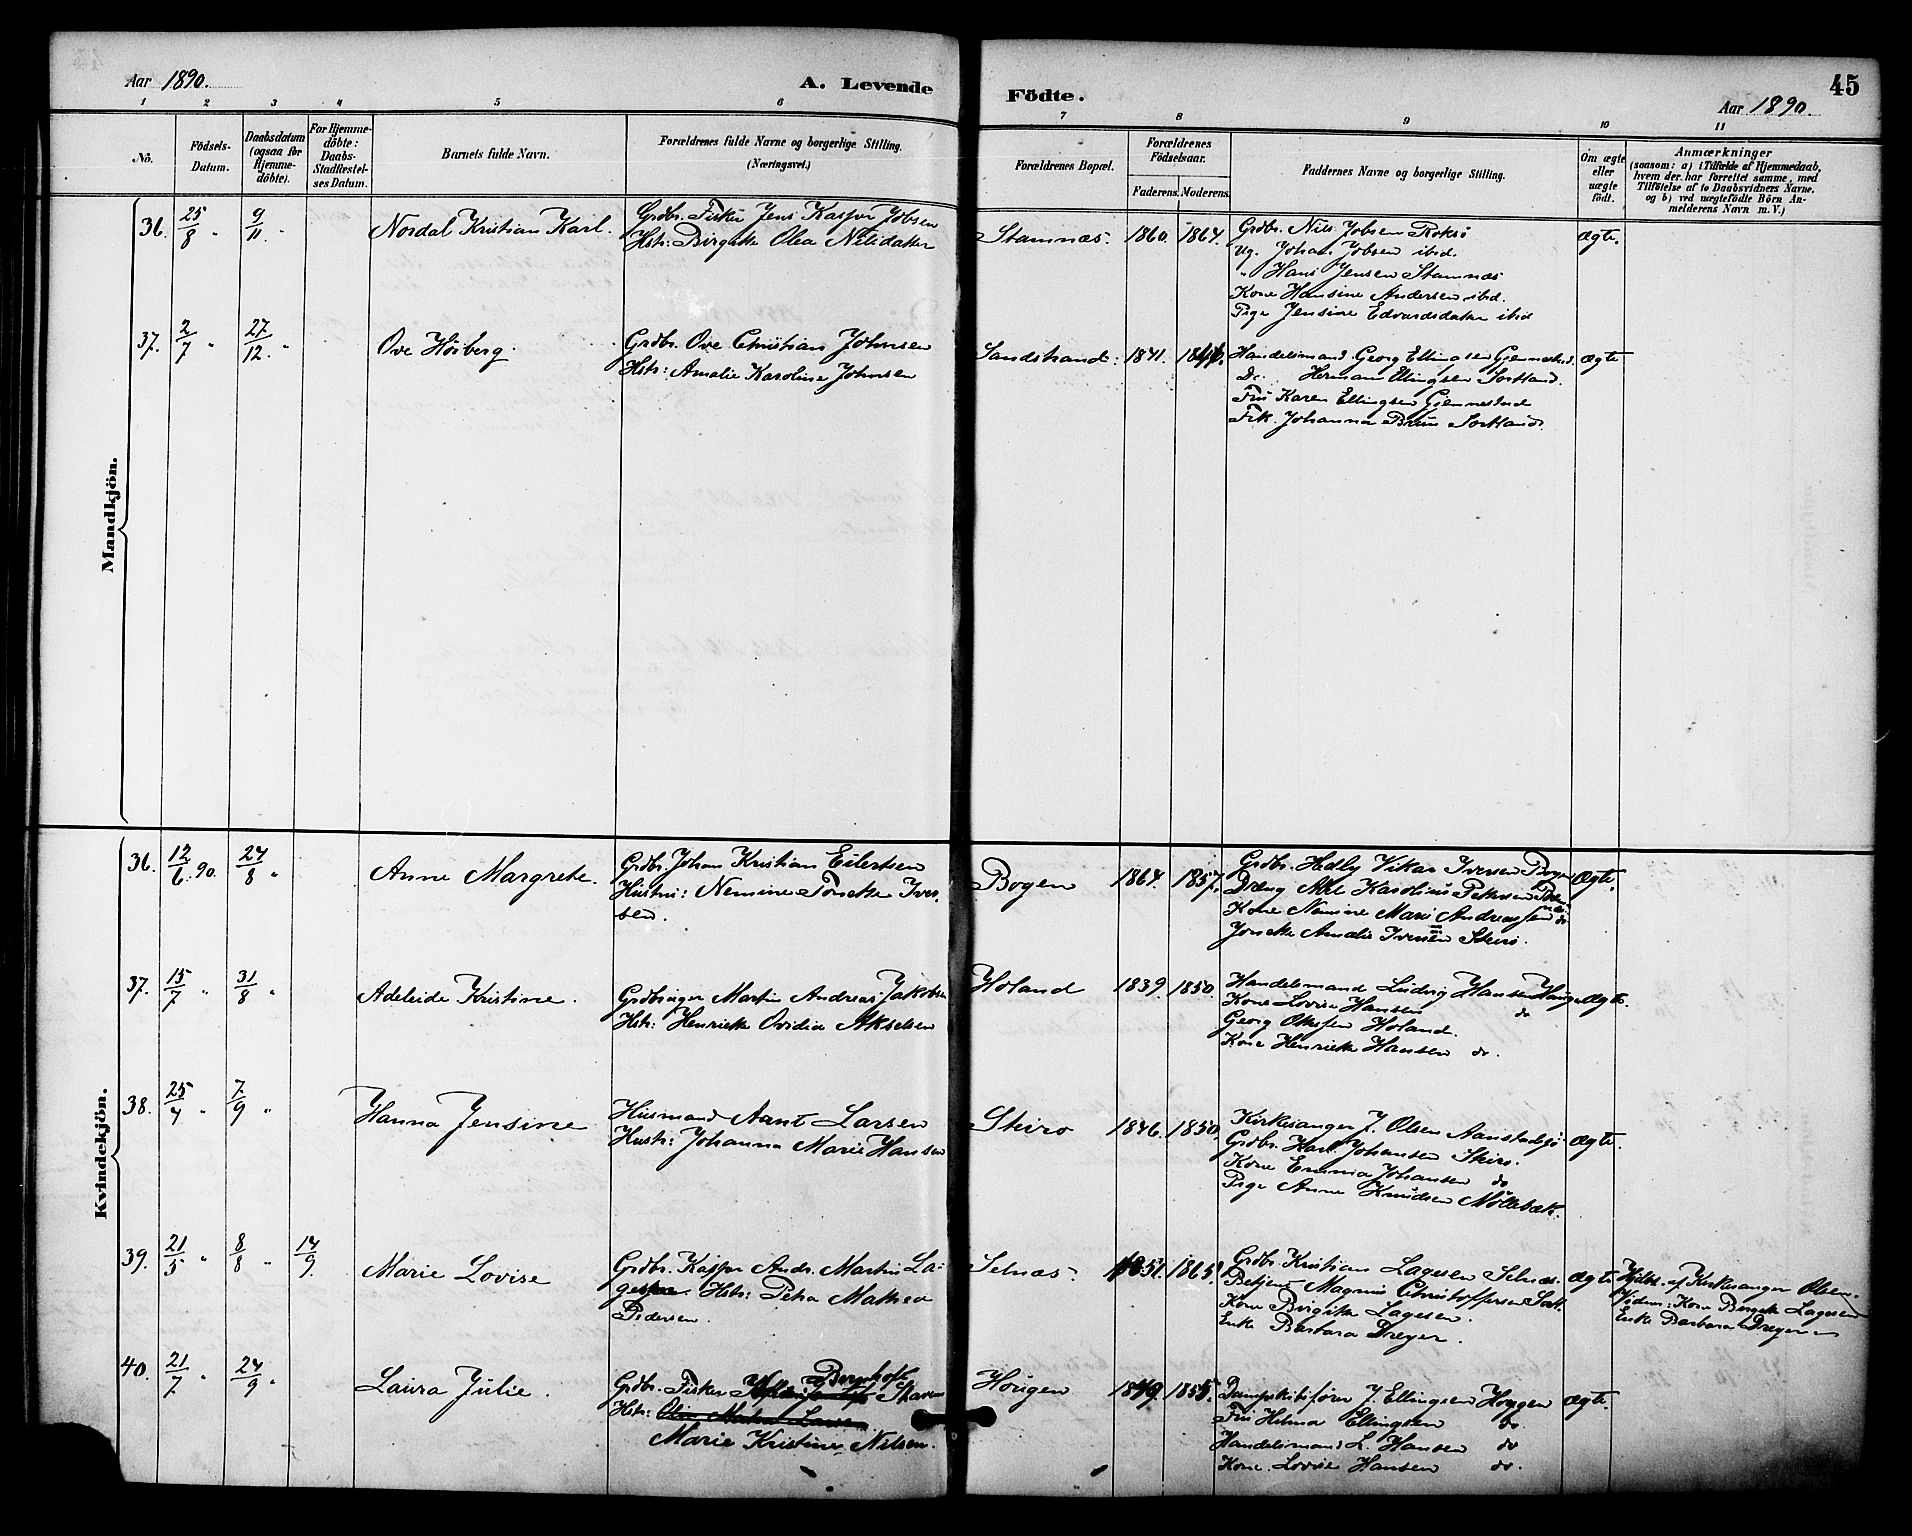 Aar 1890.
A. Levende
Födte.
45
Aar 1890.
1 2 3 4 5 6 7 8 9 10 11
No.
Födsels-
Datum.
Daabsdatum
(ogsaa for
Hjemme-
döbte).
For Hjemme-
döbte:
Daabs-
Stadfæstel-
ses Datum.
Barnets fulde Navn.
Forældrenes fulde Navne og borgerlige Stilling.
(Næringsvei.)
Forældrenes Bopæl.
Forældrenes
Födselsaar.
Faderens. Moderens.
Faddernes Navne og borgerlige Stilling.
Om ægte
eller
uægte
födt.
Anmærkninger
(saasom: a) i Tilfælde af Hjemmedaab,
hvem der har forrettet samme, med
Tilföielse af to Daabsvidners Navne.
og b) ved uægtefödte Börn An-
melderens Navn m. V.)
Mandkjön.
36. 25/8 " 9/11 "
Nordal Kristian Karl.
Grdbr. Fisker Jens Kaspar Jobsen
Hstr: Birgitte Olea Nilsdatter
Stamnæs. 1860. 1864.
Grdbr. Nils Jobsen Roksö
Ug. Johan Jobsen ibid.
" Hans Jensen Stamnæs
Kone Hansine Andersen ibd.
Pige Jensine Edvardsdatter ibid
Ægte.
37. 2/7 " 27/12 "
Ove Höiberg.
Grdbr. Ove Christian Johnsen
Hstr: Amalie Karoline Johnsen
Sandstrand. 1841.
Handelsmand Georg Ellingsen Gjennestad.
Do. Herman Ellingsen Sortland.
Fru Karen Ellingsen Gjennestad
Frk. Johanna Bruun Sortland.
Ægte
Kvindekjön.
36. 12/6 90. 24/8 "
Anne Margrete.
Grdbr. Johan Kristian Eilertsen
Hustru: Nemine Tonette Iver-
sen.
Bogen 1864. 1857.
Grdbr. Hedly Vikar Iversen Bogen
Dreng Karolius Pettersen
Kone Nemine Marie Andreassen do
Jonette Amalie Iversen Skiro.
Ægte.
37. 15/7 " 31/8 "
Adeleide Kristine.
Grdbruger Martin Andreas Jakobsen
Hstr: Henriette Ovidia Akselsen
Holand 1839. 1850.
Handelsmand Ludvig Hansen Haugen
Kone Lovise Hansen do
Georg Ottesen Holand.
Kone Henriette Hansen do.
Ægte.
38. 25/7 " 7/9 "
Hanna Jensine
Husmand Arnt Larsen
Hustr: Johanna Marie Hansen
Skiro 1846. 1850.
Kirkesanger J. Olsen Aanstadsjö.
Grdbr. Karl Johansen Skiro.
Kone Emma Johansen do
Pige Anne Knudsen Möllebæk.
Ægte.
39. 21/5 " 8/8 " 14/9.
Marie Lovise
Grdbr. Kaspar Andr. Martin La-
gesen. Hstr: Petra Mathea
Pedersen.
Selnæs. 1851. 1865.
Grdbr. Kristian Lagesen Selnæs.
Betjent Magnus Christoffersen Sortl.
Kone Birgitte Lagesen.
Enke Barbara Dreyer.
Ægte.
Hjdbt. af Kirkesanger Olsen.
Vidner: Kone Birgitte Lagesen
Enke Barbara Dreyer
40. 21/7 " 24/9 "
Laura Julie.
Bernhoft
Grdbr. Fisker
Hstr:
Marie Kristine Nilsen.
Hougen 1849. 1855.
Dampskibsförer J. Ellingsen Houggen
Fru Helma Ellingsen do
Handelsmand L. Hansen do
Kone. Lovise Hansen do.
Ægte.